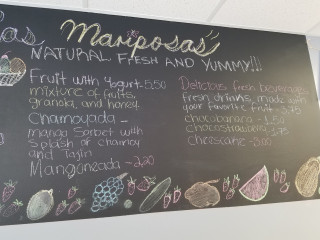 as
Mariposas
NATURAL, FRESH AND YUMMY!!!
Fruit with yogurt-5,50
mixture of fruits,
granola, and honey.
Chamoyada -
mango Sorbet with
Splash of chamoy
and Tajin
Mangoneada -
Delicious fresh beverages
fresh drinks, made with
your favorite fruit -
chocobanana - 1,50
chocostrawberry 1,75
Cheescake -5.00